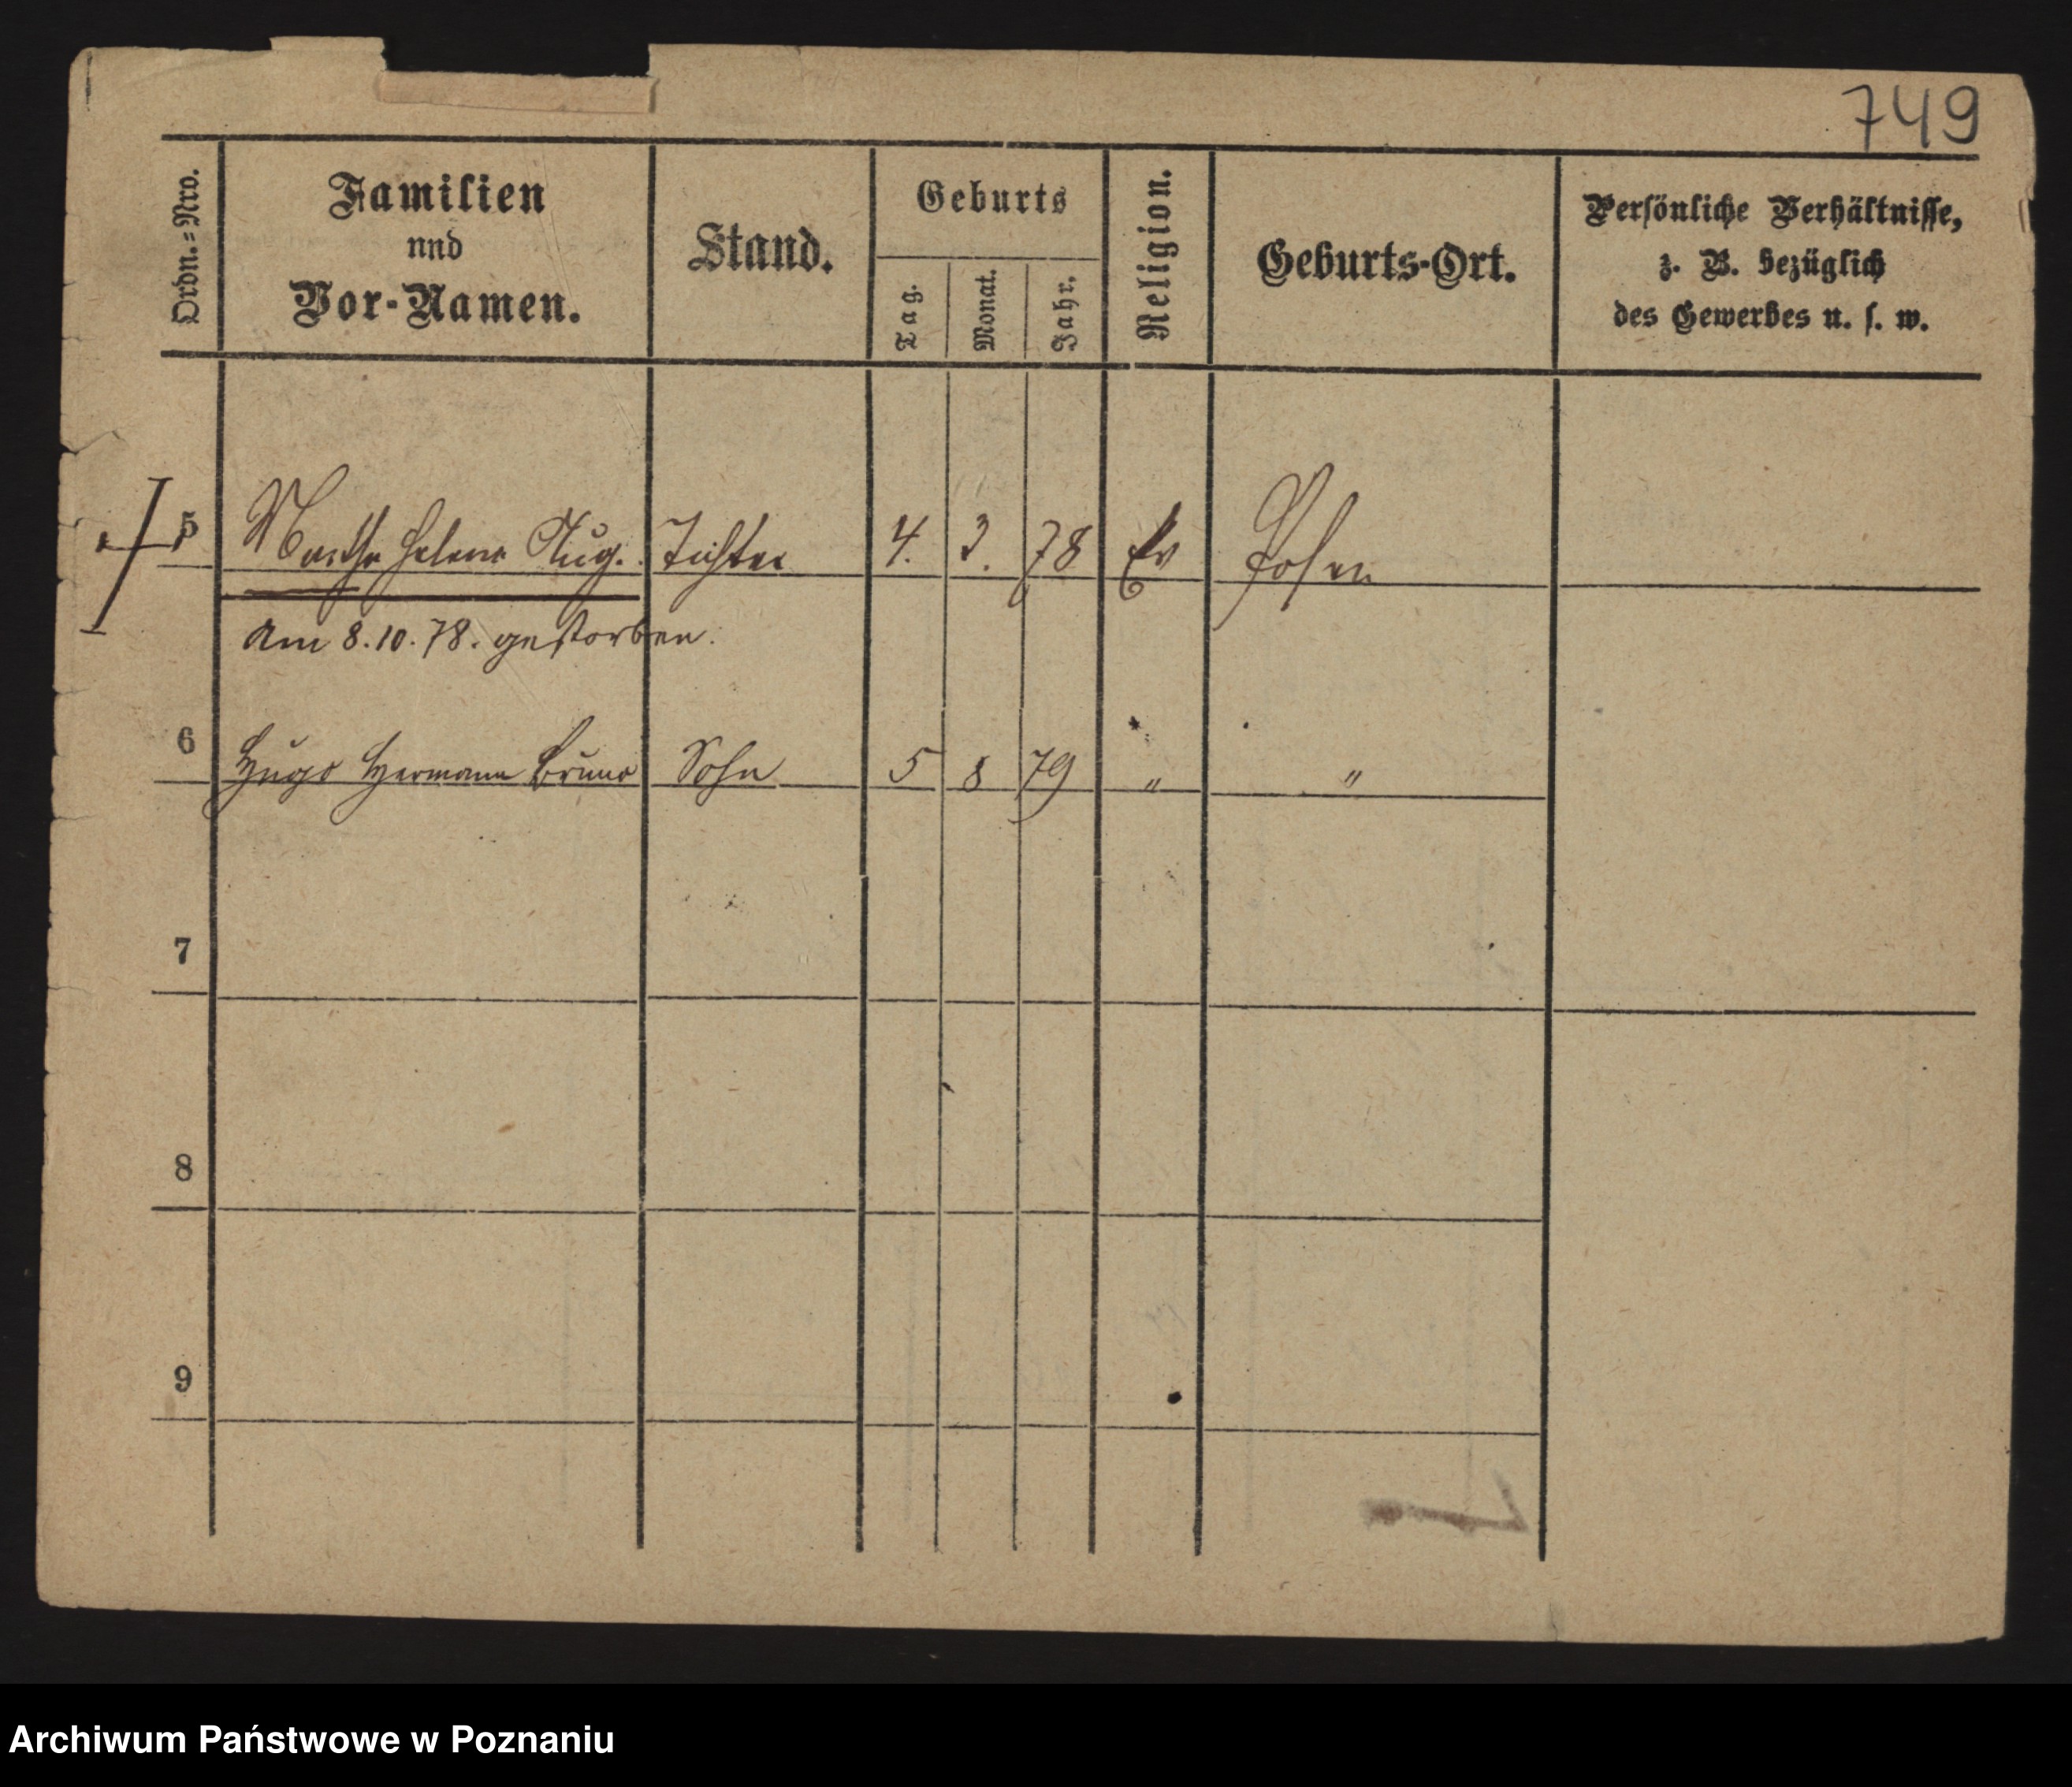 749
Ordn.=Nro.
Familien
nnd
Vor-Namen.
Stand.
Geburts
Tag.
Monat.
Jahr.
Religion.
Geburts-Ort.
Persönliche Verhältnisse,
z. B. bezüglich
des Gewerbes u. s. w.
5 Martha Helene Aug. Tochter 4. 3. 78 Ev Posen
Am 8.10.78. gestorben.
6 Hugo Hermann Bruno Sohn 5 8 79 " "
7
8
9
Archiwum Państwowe w Poznaniu